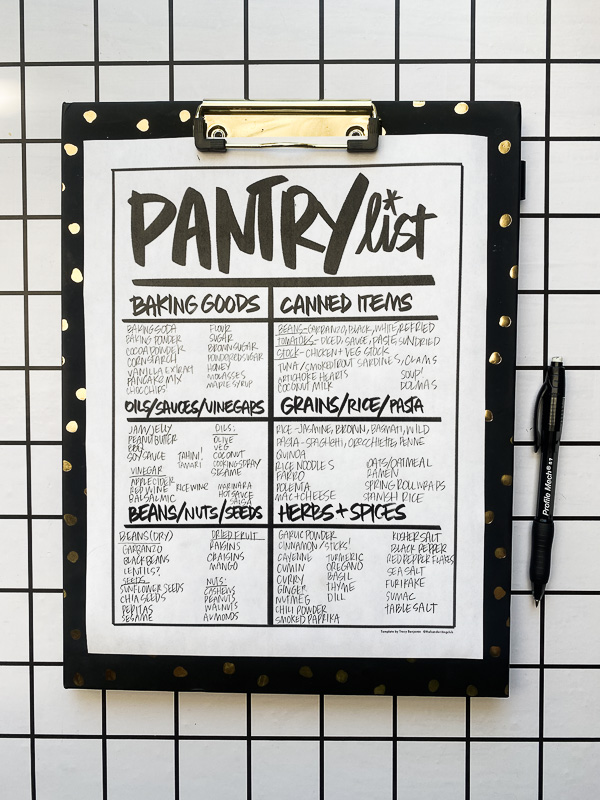 PANTRY list*
BAKING GOODS
BAKING SODA
BAKING POWDER
COCOA POWDER
CORNSTARCH
VANILLA EXTRACT
PANCAKE MIX
CHOC CHIPS
FLOUR
SUGAR
BROWN SUGAR
POWDERED SUGAR
HONEY
MOLASSES
MAPLE SYRUP
CANNED ITEMS
BEANS-GARBANZO, BLACK, WHITE, REFRIED
TOMATOES-DICED, SAUCE, PASTE, SUNDRIED
STOCK-CHICKEN + VEG STOCK
TUNA/SMOKED TROUT SARDINES, CLAMS
ARTICHOKE HEARTS
COCONUT MILK
SOUP!
DOLMAS
OILS/SAUCES/VINEGARS
JAM/JELLY
PEANUT BUTTER
BBQ
SOY SAUCE
TAHINI!
TAMARI
VINEGAR
APPLE CIDER
RED WINE
RICE WINE
BALSAMIC
OILS:
OLIVE
VEG
COCONUT
COOKING SPRAY
SESAME
MARINARA
HOT SAUCE
SALSA
GRAINS/RICE/PASTA
RICE-JASMINE, BROWN, BASMATI, WILD
PASTA-SPAGHETTI, ORECCHIETTE, PENNE
QUINOA
RICE NOODLES
FARRO
POLENTA
MAC+CHEESE
OATS/OATMEAL
RAMEN
SPRING ROLL WRAPS
SPANISH RICE
BEANS/NUTS/SEEDS
BEANS (DRY)
GARBANZO
BLACK BEANS
LENTILS?
SEEDS
SUNFLOWER SEEDS
CHIA SEEDS
PEPITAS
SESAME
DRIED FRUIT
RAISINS
CRAISINS
MANGO
NUTS:
CASHEWS
PEANUTS
WALNUTS
ALMONDS
HERBS + SPICES
GARLIC POWDER
CINNAMON/STICKS!
CAYENNE
CUMIN
CURRY
GINGER
NUTMEG
CHILI POWDER
SMOKED PAPRIKA
TURMERIC
OREGANO
BASIL
THYME
DILL
KOSHER SALT
BLACK PEPPER
RED PEPPER FLAKES
SEA SALT
FURIKAKE
SUMAC
TABLE SALT
Profile Mech